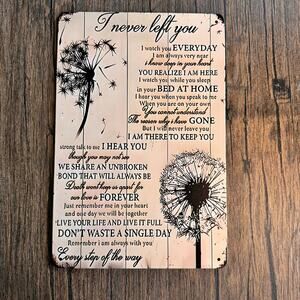 I never left you
I watch you EVERYDAY
I am always very near
i know deep in your heart
YOU REALIZE I AM HERE
I watch you while you sleep
in your BED AT HOME
I hear you when you speak to me
When you are on your own
You cannot understand
The reason why i have GONE
But I will never leave you
I AM THERE TO KEEP YOU
strong talk to me I HEAR YOU
though you may not see
WE SHARE AN UNBROKEN
BOND THAT WILL ALWAYS BE
Death wont keep us apart for
our love is FOREVER
Just remember me in your heart
and one day we will be together
LIVE YOUR LIFE AND LIVE IT FULL
DON'T WASTE A SINGLE DAY
Remember i am always with you
Every step of the way